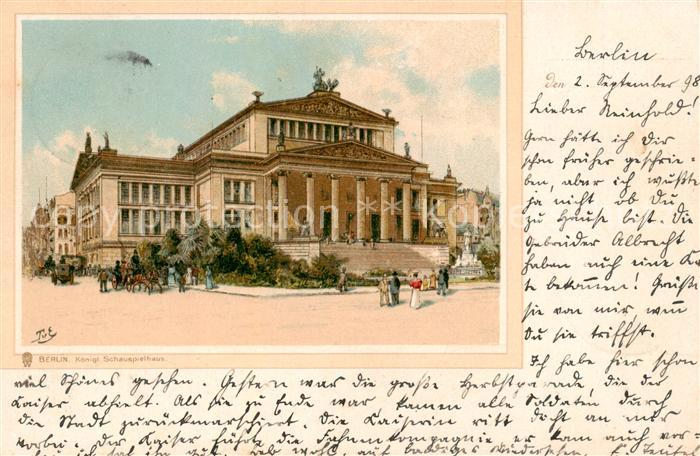 Berlin
den 2. September 98
Lieber Reinhold!
Gern hätte ich Dir
schon früher geschrie-
ben, aber ich wußte
ja nicht ob Du
zu Hause bist. Die
Gebrüder Albrecht
haben auch eine Kar-
te bekommen! Grüße
sie von mir, wenn
Du sie triffst.
Ich habe hier schon
T.v.E
BERLIN. Königl. Schauspielhaus.
viel Schönes gesehen. Gestern war die große Herbstparade, die der
Kaiser abhielt. Als sie zu Ende war kamen alle Soldaten durch
die Stadt zurückmarschiert. Die Kaiserin ritt dicht an mir
vorbei. Der Kaiser führte die Fahnenkompagnie er kam auch vor-
auf baldiges Wiedersehen.